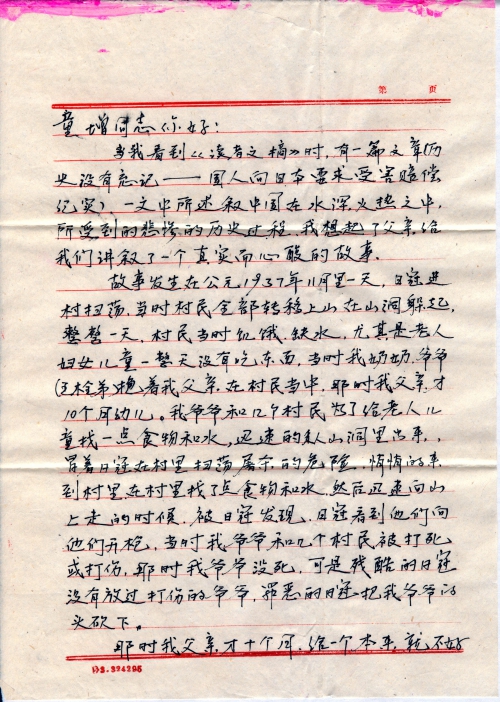 第 页
童增同志你好：
当我看到《读者文摘》时，有一篇文章(历
史没有忘记——国人向日本要求受害赔偿
纪实)一文中所述叙中国在水深火热之中，
所受到的悲惨的历史过程，我想起了父亲给
我们讲叙了一个真实而心酸的故事。
故事发生在公元1937年11月里一天，日冠进
村扫荡，当时村民全部转移上山在山洞躲起，
整整一天，村民当时饥饿.缺水，尤其是老人
妇女儿童一整天没有吃东西，当时我奶奶.爷爷
抱着我父亲.在村民当中，耶时我父亲才
10个月幼儿。我爷爷和几个村民为了给老人儿
童找一点食物和水，迅速的从山洞里出来，
冒着日冠在村里扫荡屠杀的危险，悄悄的来
到村里在村里找了点食物和水，然后迅速向山
上走的时候，被日冠发现，日冠看到他们向
他们开枪，当时我爷爷和几个村民被打死
或打伤，耶时我爷爷没死，可是残酷的日冠
没有放过打伤的爷爷，罪恶的日冠把我爷爷的
头砍下。
耶时我父亲才十个月，给一个本来就不好
13.324295